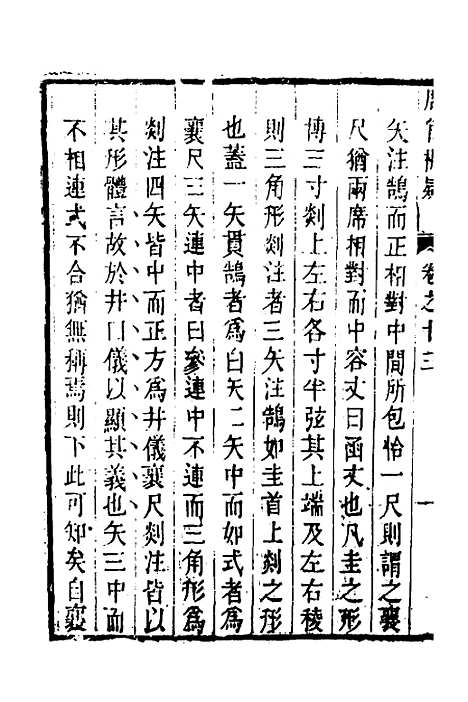 周官析疑 卷之十三 一
矢注鵠而正相對中間所包恰一尺則謂之襄
尺猶兩席相對而中容丈曰函丈也凡圭之形
博三寸剡上左右各寸半弦其上端及左右稜
則三角形剡注者三矢注鵠如圭首上剡之形
也蓋一矢貫鵠者為白矢二矢中而如式者為
襄尺三矢連中者曰參連中不連而三角形為
剡注四矢皆中而正方為井儀襄尺剡注皆以
其形體言故於井口儀以顯其義也矢三中而
不相連式不合猶無稱焉則下此可知矣自襄